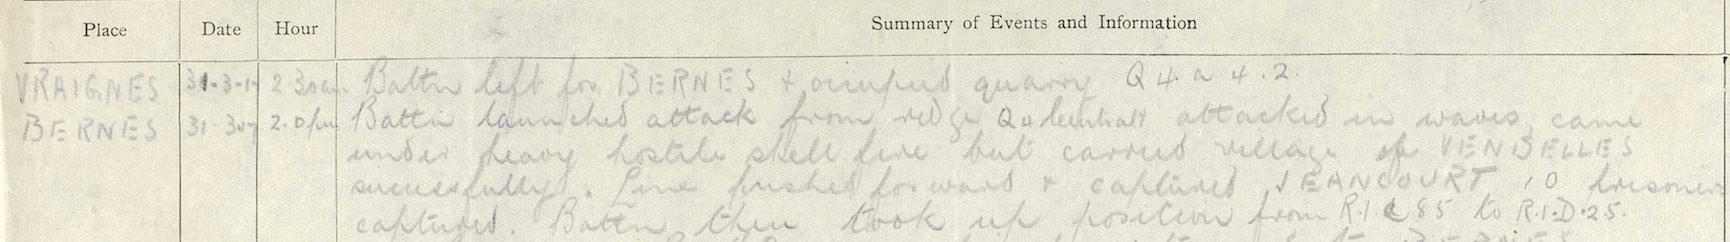 Place Date Hour Summary of Events and Information
VRAIGNES 31-3-17 2.30am Battn left for BERNES + occupied quarry Q 4. a 4. 2.
BERNES 31-3-17 2.0pm Battn launched attack from ridge Q attacked in waves, came
under heavy hostile shell fire but carried village of VENDELLES
successfully. Line pushed forward + captured JEANCOURT 10 prisoners
captured. Battn then took up position from R.1.C 85 to R.1.D.25.
BERNES